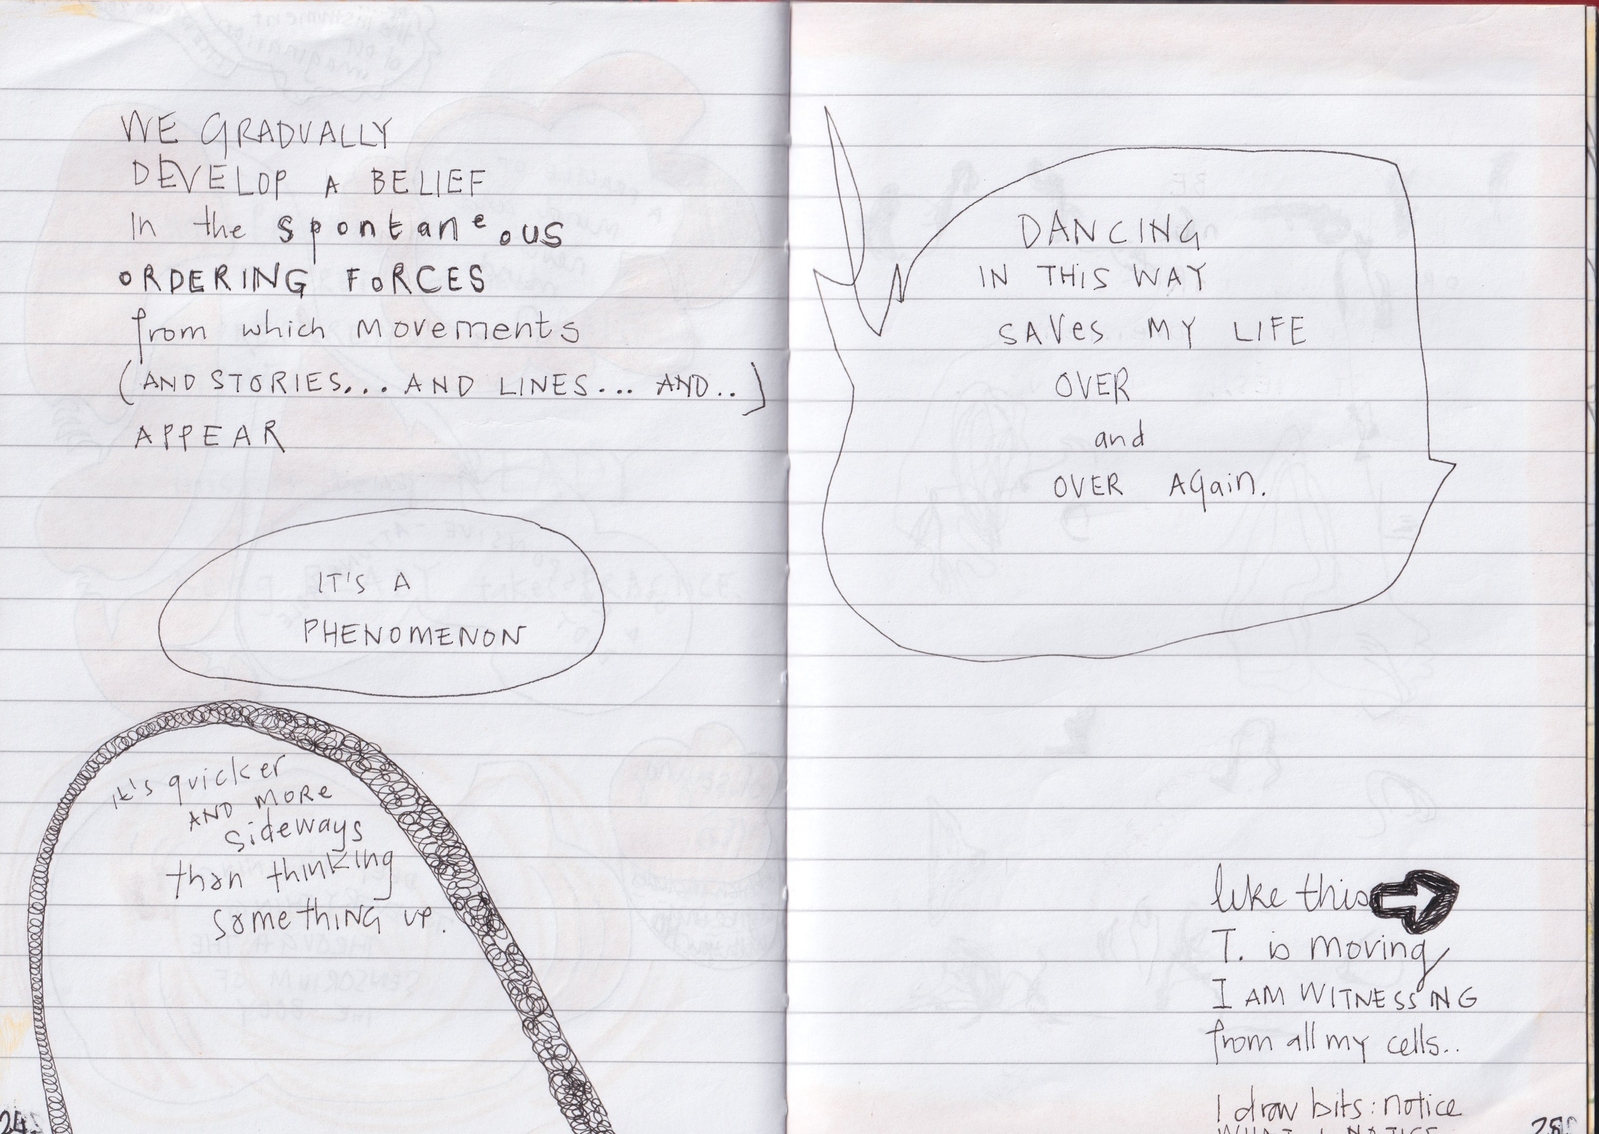 WE GRADUALLY
DEVELOP A BELIEF
In the spontaneous
ORDERING FORCES
from which movements
(AND STORIES... AND LINES... AND..)
APPEAR
IT'S A
PHENOMENON
it's quicker
AND MORE
sideways
than thinking
someTHING up.
DANCING
IN THIS WAY
SAVes MY LIFE
OVER
and
OVER AGain.
like this
T. is moving
I AM WITNESSING
from all my cells..
I draw bits: notice
WHAT I NOTICE